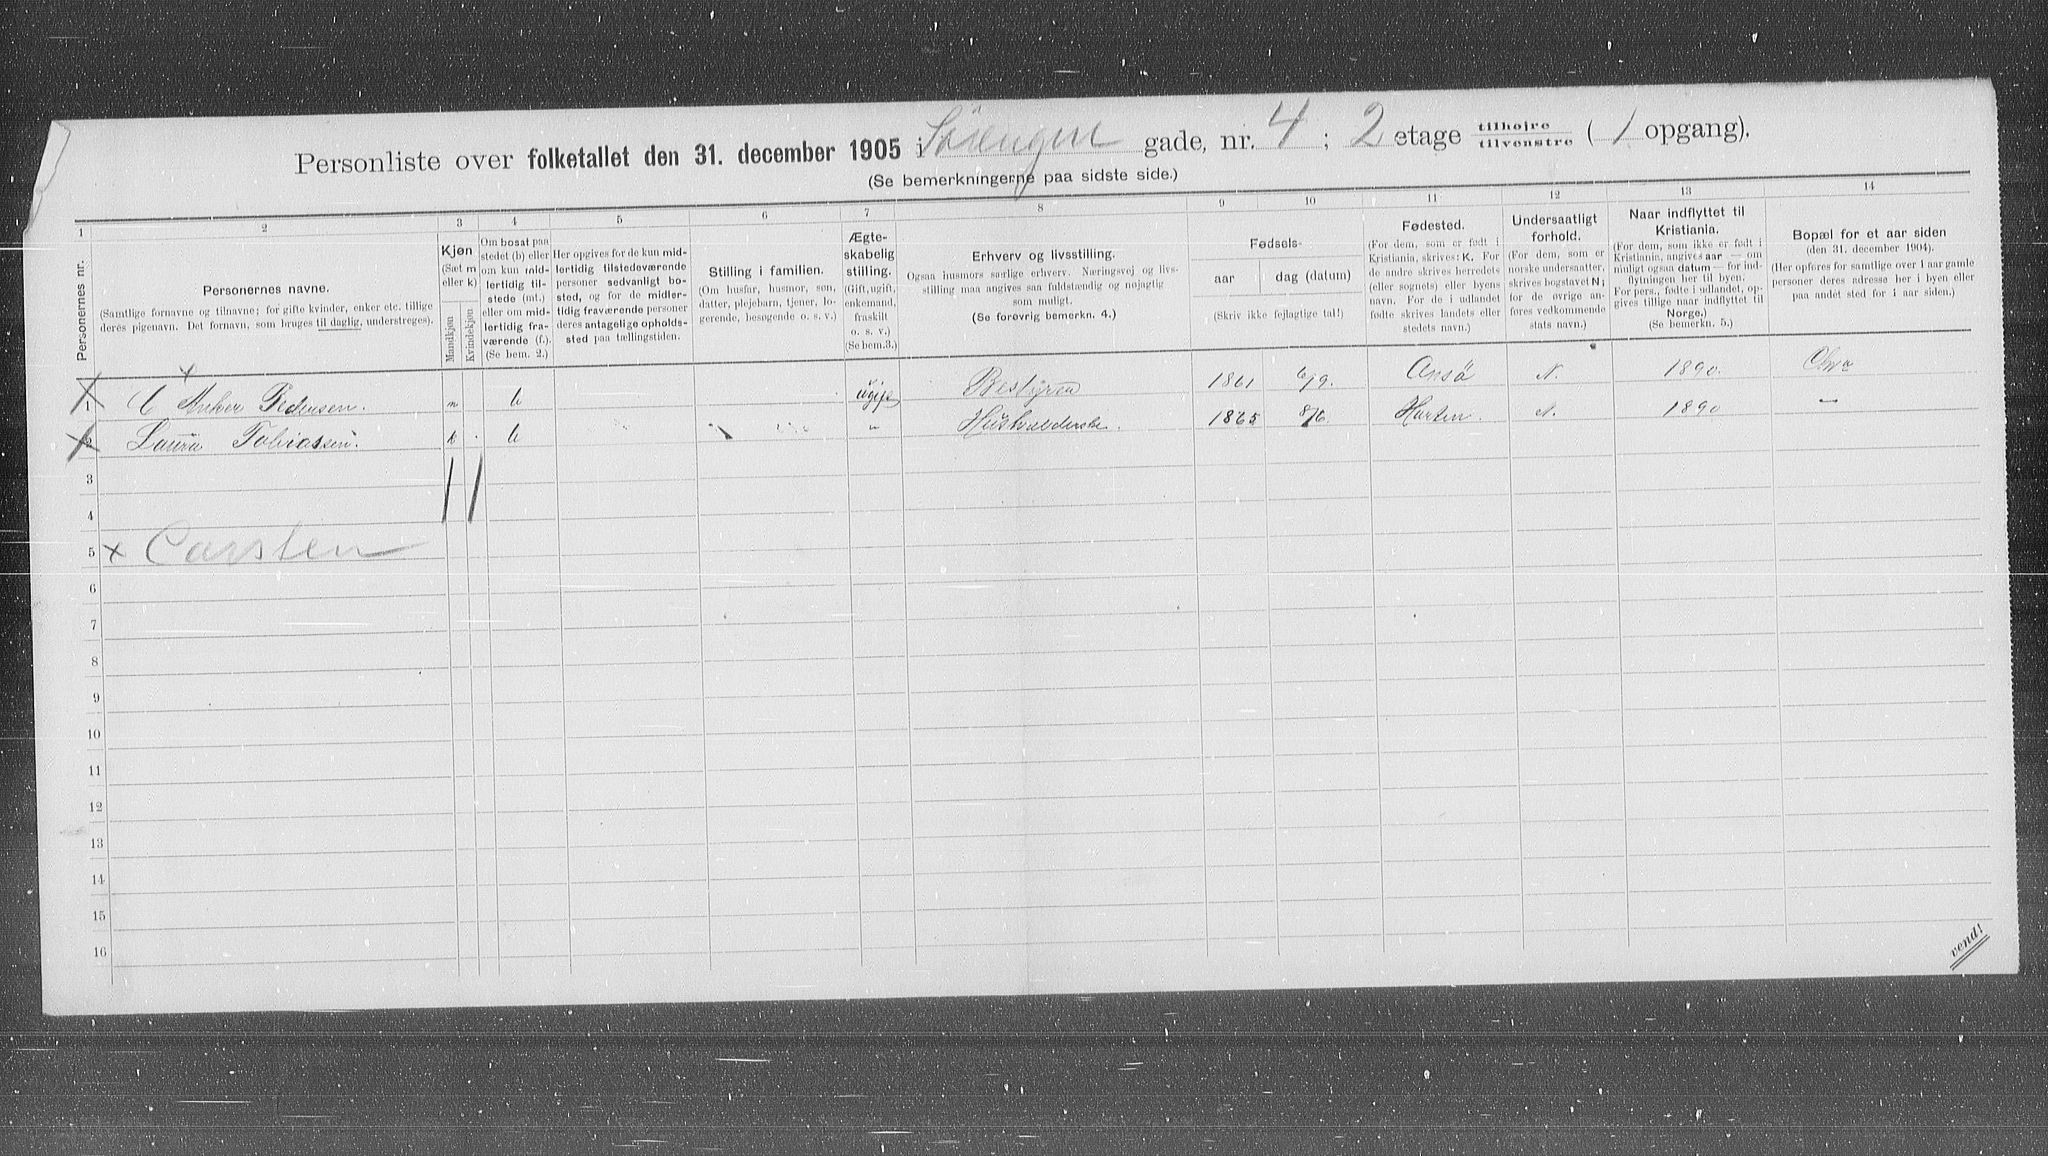 Personliste over folketallet den 31. december 1905 i Sørengen gade, nr. 4; 2 etage tilhøjre tilvenstre (1 opgang).
(Se bemerkningerne paa sidste side.)
1 2 3 4 5 6 7 8 9 10 11 12 13 14
Personernes nr.
Personernes navne.
(Samtlige fornavne og tilnavne; for gifte kvinder, enker etc. tillige
deres pigenavn. Det fornavn, som bruges til daglig, understreges).
Kjøn
(Sæt m
eller k)
Mandkjøn
Kvindekjøn.
Om bosat paa
stedet (b) eller
om kun mid-
lertidig til-
stede (mt.)
eller om mid-
lertidig fra-
værende (f.).
(Se bem. 2.)
Her opgives for de kun mid-
lertidig tilstedeværende
personer sedvanligt bo-
sted, og for de midler-
tidig fraværende personer
deres antagelige opholds-
sted paa tællingstiden.
Stilling i familien.
(Om husfar, husmor, søn,
datter, plejebarn, tjener, lo-
gerende, besøgende o. s. v.)
Ægte-
skabelig
stilling.
(Gift, ugift,
enkemand,
fraskilt
o. s. v.)
(Se bem.3.)
Erhverv og livsstilling.
Ogsaa husmors særlige erhverv. Næringsvej og livs-
stilling maa angives saa fuldstændig og nøjagtig
som muligt.
(Se forøvrig bemerkn. 4.)
Fødsels-
aar dag (datum)
(Skriv ikke fejlagtige tal!)
Fødested.
(For dem, som er født i
Kristiania, skrives: K. For
de andre skrives herredets
(eller sognets) eller byens
navn. For de i udlandet
fødte skrives landets eller
stedets navn.)
Undersaatligt
forhold.
(For dem, som er
norske undersaatter,
skrives bogstavet N;
for de øvrige an-
føres vedkommende
stats navn.)
Naar indflyttet til
Kristiania.
(For dem, som ikke er født i
Kristiania, angives aar — om
muligt ogsaa datum — for ind-
flytningen her til byen.
For pers., fødte i udlandet, op-
gives tillige naar indflyttet til
Norge.)
(Se bemerkn. 5.)
Bopæl for et aar siden
(den 31. december 1904).
(Her opføres for samtlige over 1 aar gamle
personer deres adresse her i byen eller
paa andet sted for 1 aar siden.)
1 C Anker Pedersen. m b ugift Bestyrer 1861 6/9. N. 1890.
2 Laura Tobiassen. k b " Husholderske. 1865 8/6 N. 1890 "
3
4
5 x Carsten
6
7
8
9
10
11
12
13
14
15
16
vend!